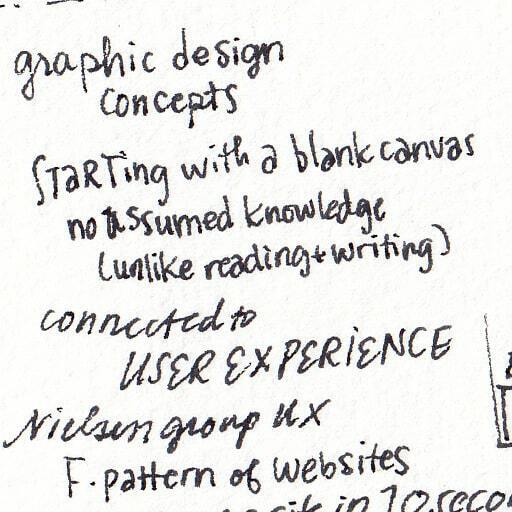 graphic design
concepts
STARTing with a blank canvas
no assumed knowledge
(unlike reading + writing)
connected to
USER EXPERIENCE
Nielsen group UX
F. pattern of websites
in 10